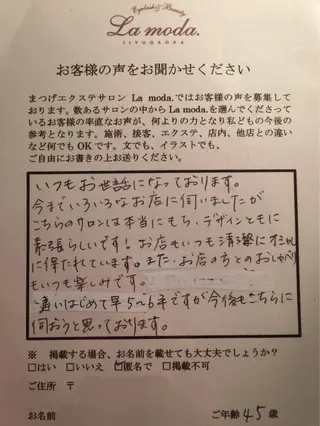 Eyelash & Beauty
La moda.
JIYUGAOKA
お客様の声をお聞かせください
まつげエクステサロン La moda.ではお客様の声を募集して
おります。数あるサロンの中からLa moda.を選んでくださってい
るお客様の率直なお声が、何よりの力となり私どもの今後の
参考となります。施術、接客、エクステ、店内、他店との違い
など何でもOKです。文でも、イラストでも、
ご自由にお書きの上お送りください。
いつもお世話になっております。
今までいろいろなお店に伺いましたが
こちらのサロンは本当にもち、デザインともに
素晴らしいです！お店もいつも清潔に
に保たれています。また、お店の方とのおしゃべり
もいつも楽しみです。
通いはじめて早5〜6年ですが今後もこちらに
伺おうと思っております。
※ 掲載する場合、お名前を載せても大丈夫でしょうか？
□はい □いいえ ☑匿名で □掲載不可
ご住所 〒
お名前 ご年齢 45 歳